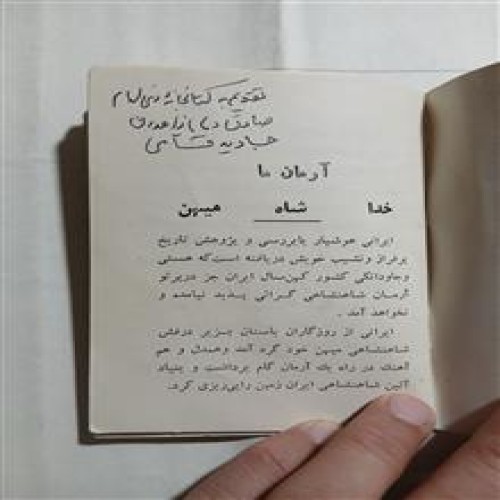 تقدیم به کتابخانه
آرمان ما
خدا شاه میهن
ایرانی هوشیار بابررسی و پژوهش تاریخ
پرفراز و نشیب خویش دریافته است که هستی
وجاودانگی کشور کهن‌سال ایران جز در پرتو
آرمان شاهنشاهی گرانی پدید نیامده و
نخواهد آمد .
ایرانی از روزگاران باستان بزیر درفش
شاهنشاهی میهن خود گرد آمد وهمدل و هم
آهنگ در راه یك آرمان گام برداشت و بنیاد
آئین شاهنشاهی ایران زمین راپی‌ریزی کرد.